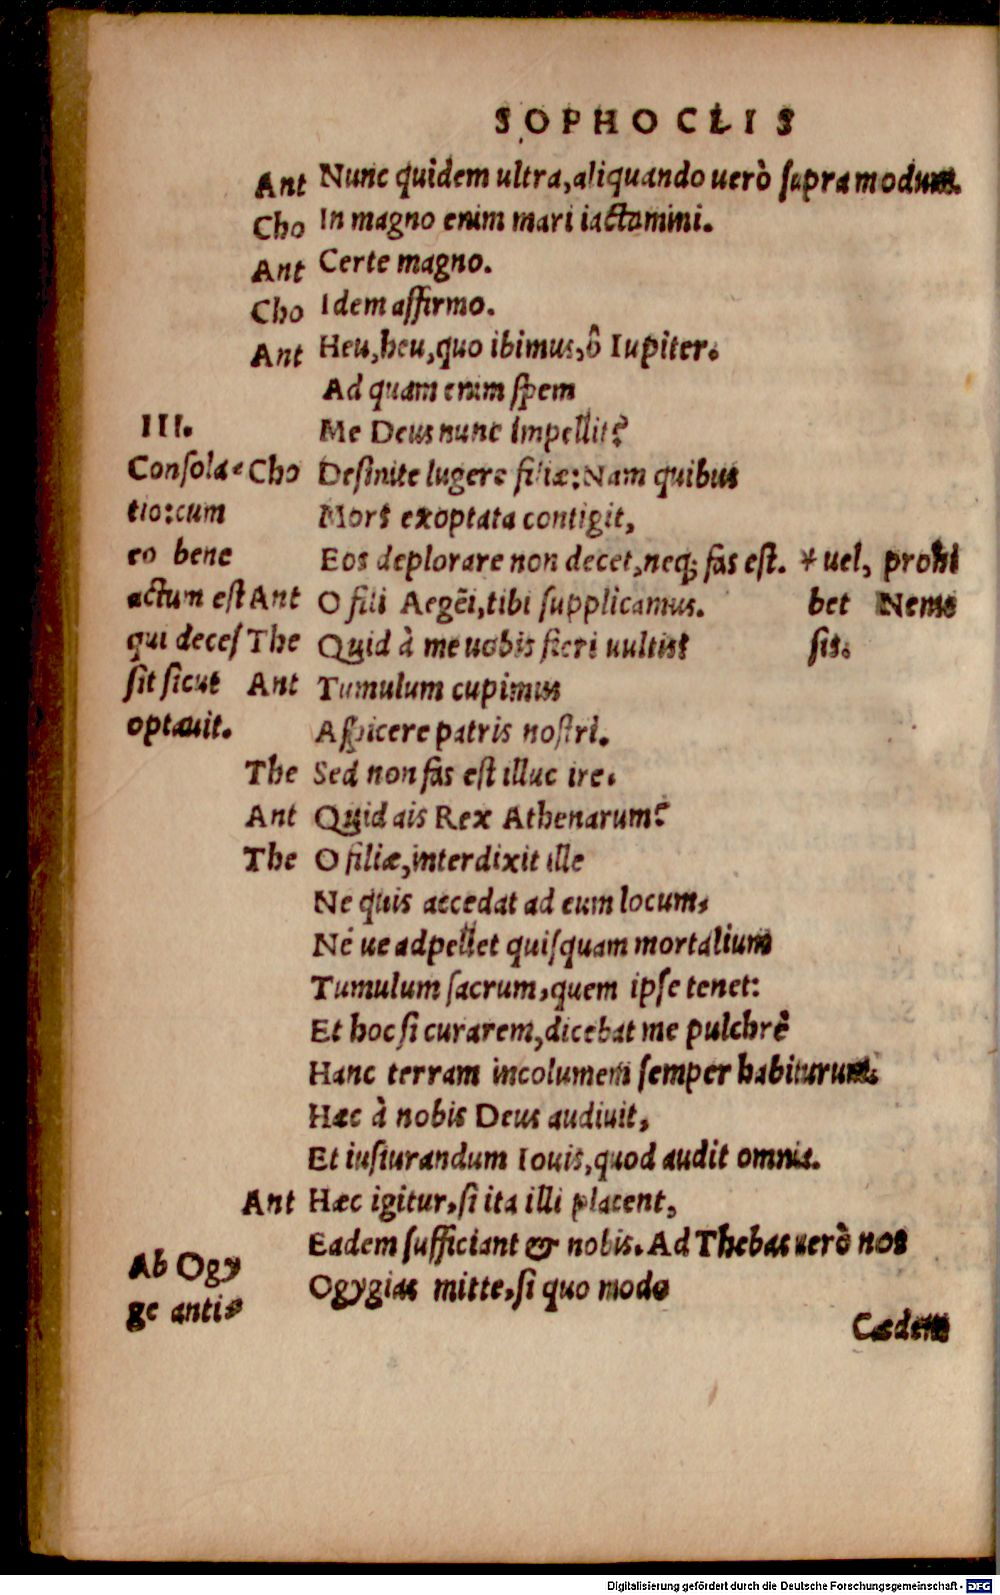 SOPHOCLIS
Ant Nunc quidem ultra, aliquando uerò supra modum.
Cho In magno enim mari iactamini.
Ant Certe magno.
Cho Idem affirmo.
Ant Heu, heu, quo ibimus, ô Iupiter.
Ad quam enim spem
III. Me Deus nunc impellit?
Consola= Cho Desinite lugere filiæ: Nam quibus
tio: cum Mors exoptata contigit,
eo bene Eos deplorare non decet, neq; fas est. * uel, prohi
actum est Ant O fili Aegei, tibi supplicamus. bet Neme
qui deces The Quid à me uobis fieri uultis? sis.
sit sicut Ant Tumulum cupimus
optauit. Aspicere patris nostri.
The Sed non fas est illuc ire.
Ant Quid ais Rex Athenarum?
The O filiæ, interdixit ille
Ne quis accedat ad eum locum,
Né ue adpellet quisquam mortalium
Tumulum sacrum, quem ipse tenet:
Et hoc si curarem, dicebat me pulchrè
Hanc terram incolumem semper habiturum.
Hæc à nobis Deus audiuit,
Et iusiurandum Iouis, quod audit omnia.
Ant Hæc igitur, si ita illi placent,
Eadem sufficiant & nobis. Ad Thebas uerò nos
Ab Ogy Ogygias mitte, si quo modo
ge anti= Cædem
Digitalisierung gefördert durch die Deutsche Forschungsgemeinschaft - DFG